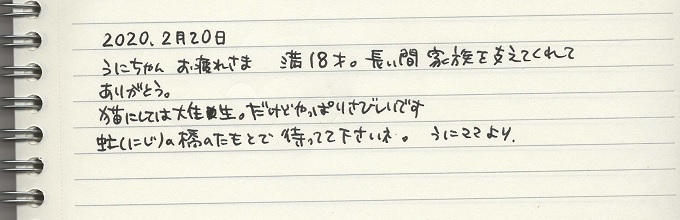 2020.2月20日
うにちゃん お疲れさま 満18才。長い間 家族を支えてくれて
ありがとう。
猫にしては大往生。だけどやっぱりさびしいです
虹(にじ)の橋のたもとで 待ってて下さいネ。 うにママより.